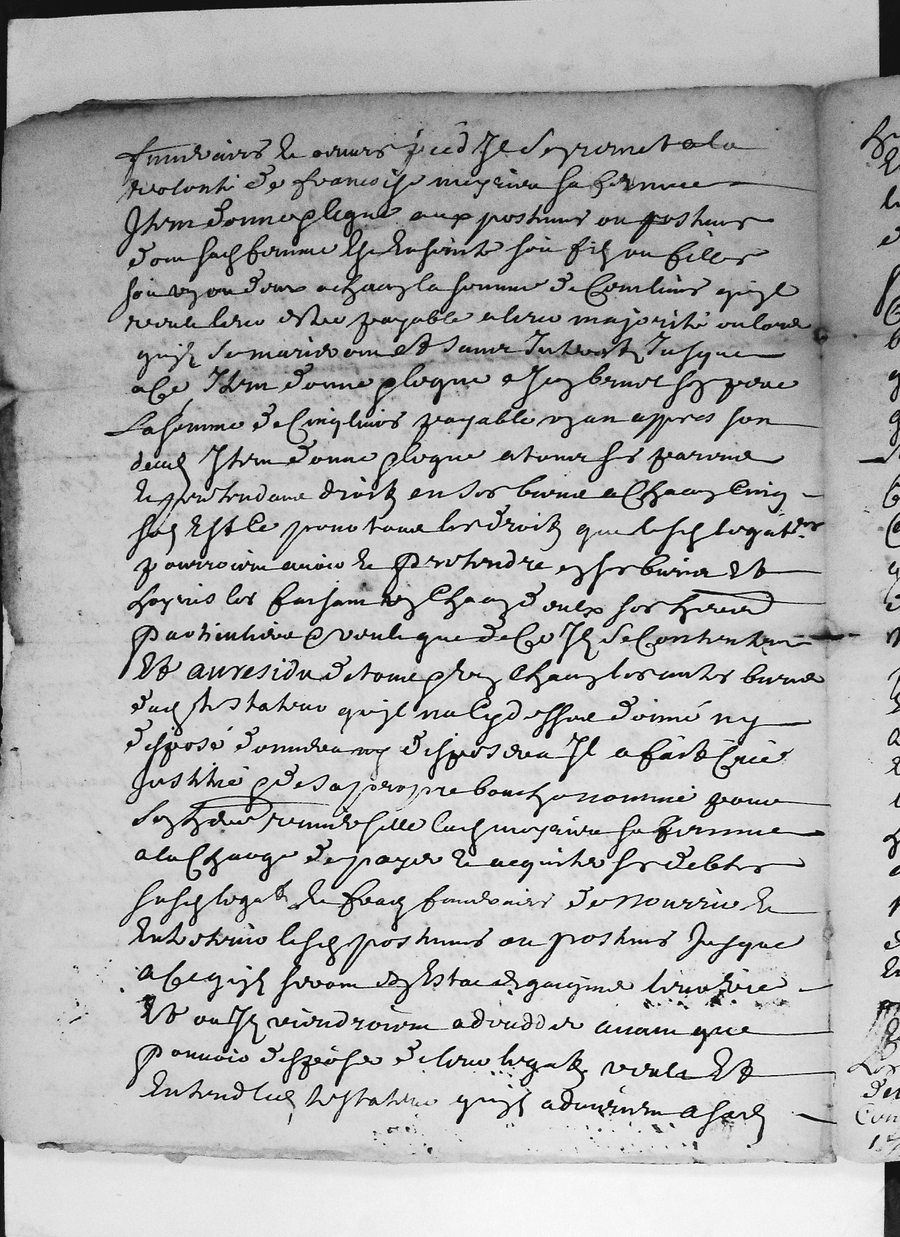 funeraires et œuvres Il se promet a la
volonté de françoise meyniere sa femme
Item donne et legue aux postumes ou postumes
dont sad femme Est Enseinte soit fils ou filles
soit un ou deux a chacun la somme de Cent livres quil
veut leur estre payable a leur majorité ou lors
quils se marieront et sans Interest Jusque
a Ce Item donne et legue a son pere
La somme de Cinq livres payable un an appres son
deces Item donne et legue a tous ses parens
et pretendant droit en ses biens a Chacun Cinq
sols Et Ce pour tous les droits que lesd legatres
pourroient avoir et pretendre en ses biens Et
les faisant Chacun deux ses heritiers
particuliers veut que de Ce Ils se Contentent
Et au residu de tous et Chacuns les autres biens
dud testateur quil na Cy dessus donné ny
disposé donnera ny disposera Il a fait Créé
Institué et de sa propre bouche nommé pour
son heritiere universelle lad meyniere sa femme
a la Charge de payer et acquiter ses debtes
susd legats et frais funeraires de nourrir et
Entretenir lesd postumes ou postumes Jusque
a Ce quils seront en Estat de gaigner leur vie
Et ou Ils viendroient a decedder avant que
pouvoir disposer de leur legats veut Et
Entend led testateur quils adviennent a sad